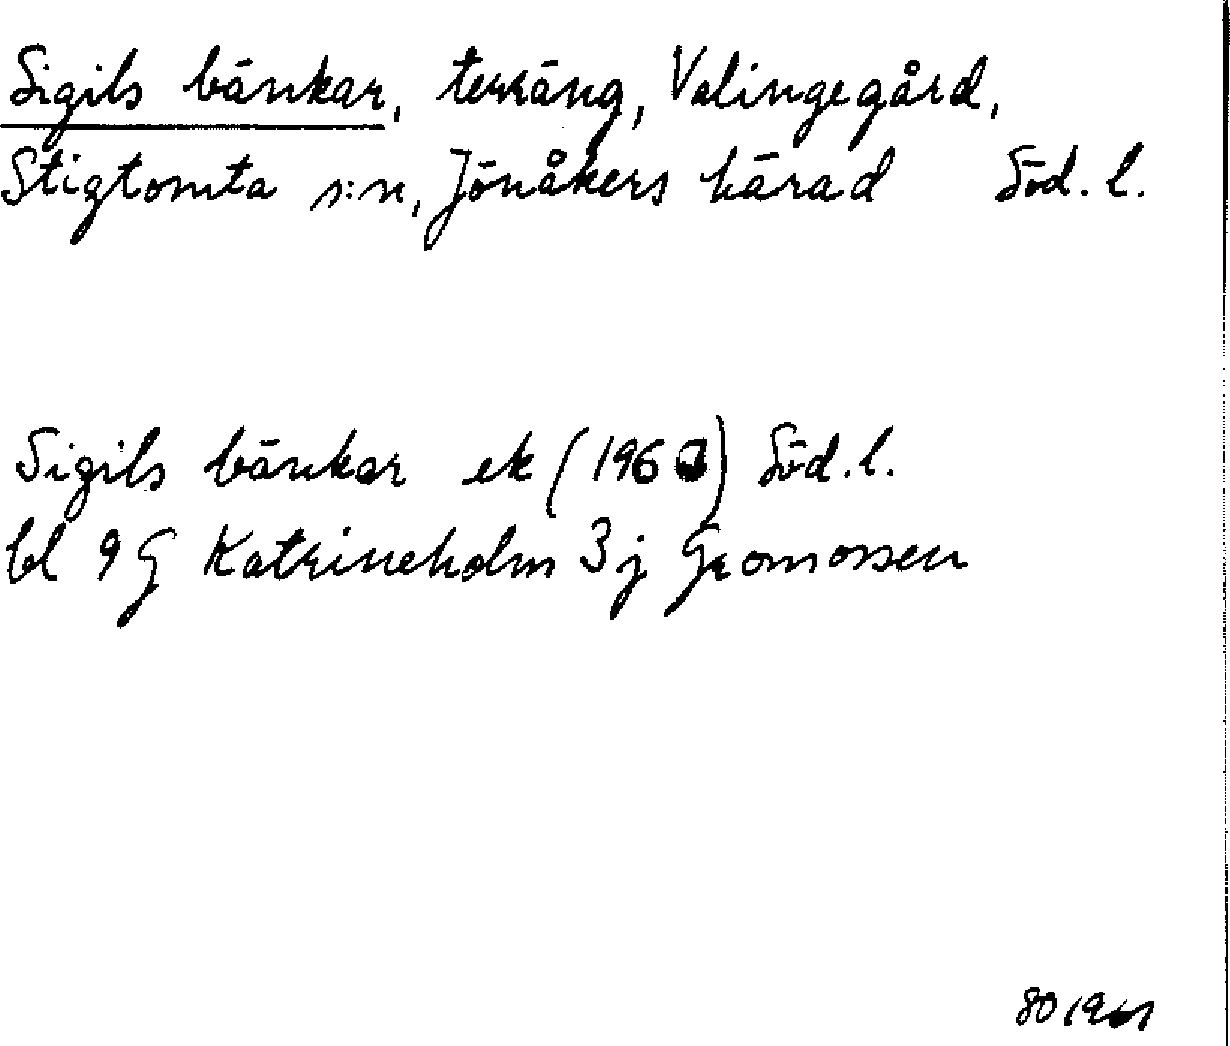 Sigils bänkar, terräng, Valingegård,
Stigtomta s:n, Jönåkers härad Söd. l.
Sigils bänkar ek (196 ) Söd. l.
bl 9 G Katrineholm 3 j Gromossen
80 1961